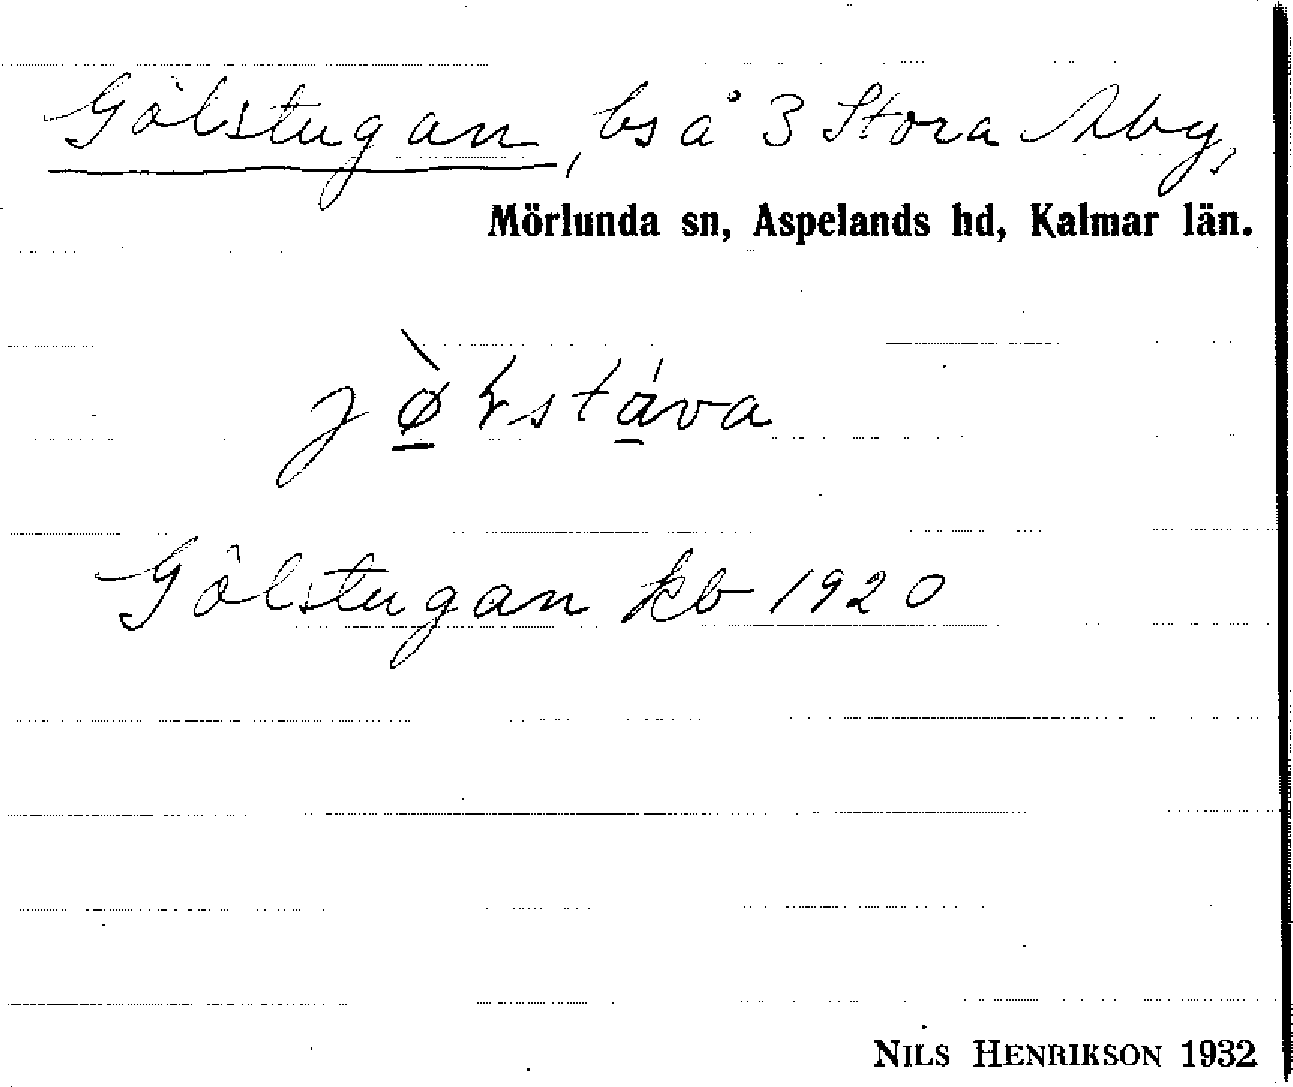 Gölstugan, bs å 3 Stora Åby,
Mörlunda sn, Aspelands hd, Kalmar län.
Gölstugan kb 1920
NILS HENRIKSON 1932